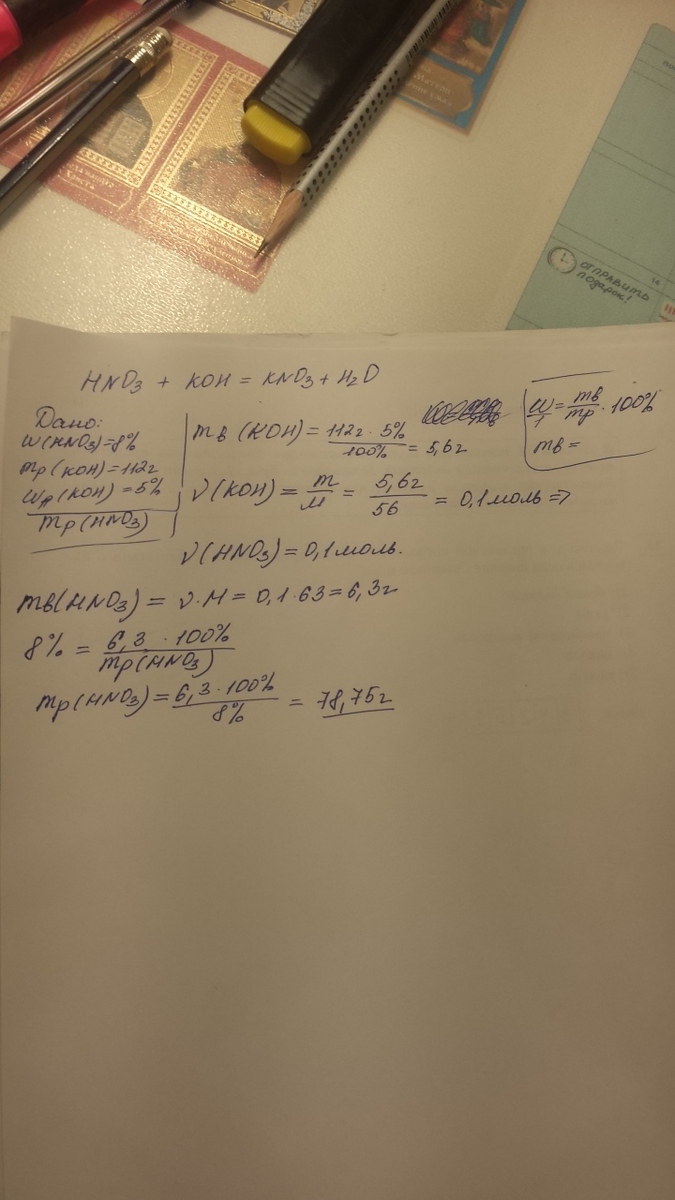 ОТПРАВИТЬ
подарок!
HNO3 + KOH = KNO3 + H2O
Дано:
ω(HNO3)=8%
mр(KOH)=112г
ωр(KOH)=5%
mр(HNO3)
mв(KOH) = 112г · 5% / 100% = 5,6г
ω/1 = mв/mр · 100%
mв =
ν(KOH) = m/M = 5,6г/56 = 0,1моль ⇒
ν(HNO3) = 0,1моль.
mв(HNO3) = ν·M = 0,1·63 = 6,3г
8% = 6,3 · 100% / mр(HNO3)
mр(HNO3) = 6,3 · 100% / 8% = 78,75г